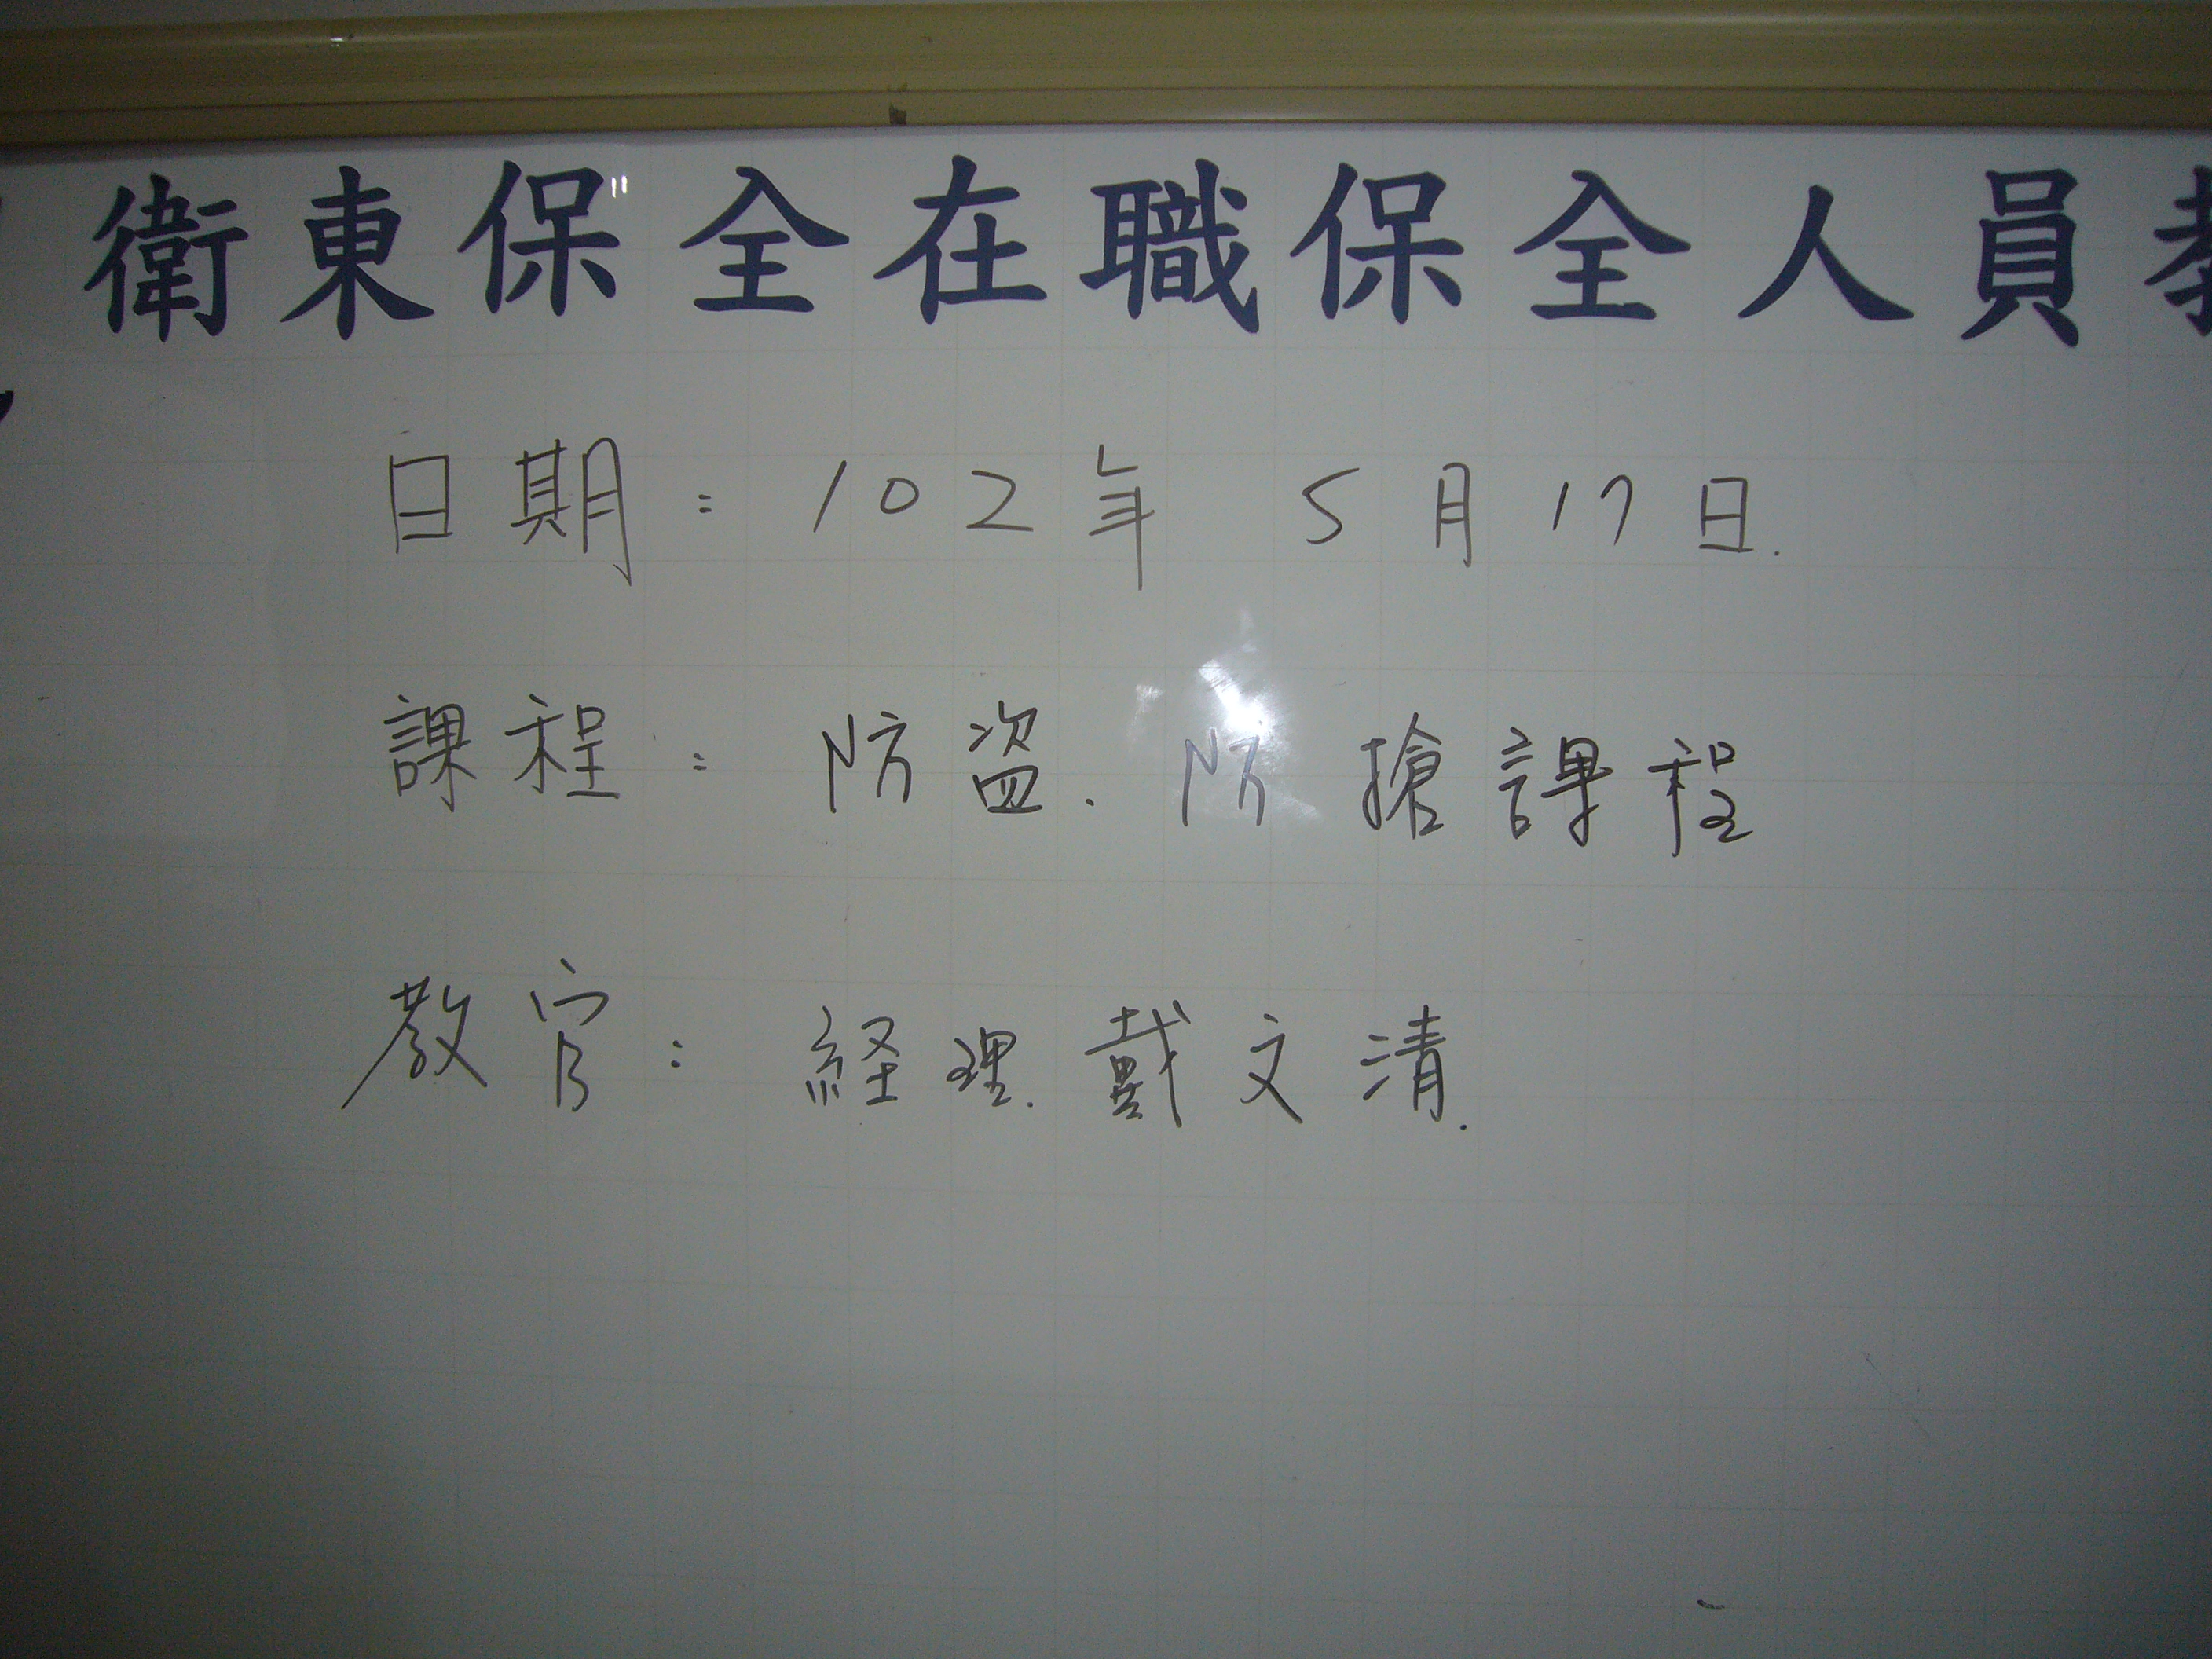 衛東保全在職保全人員教
日期：102年 5月17日.
課程：防盜.防搶課程
教官：経理.戴文清.